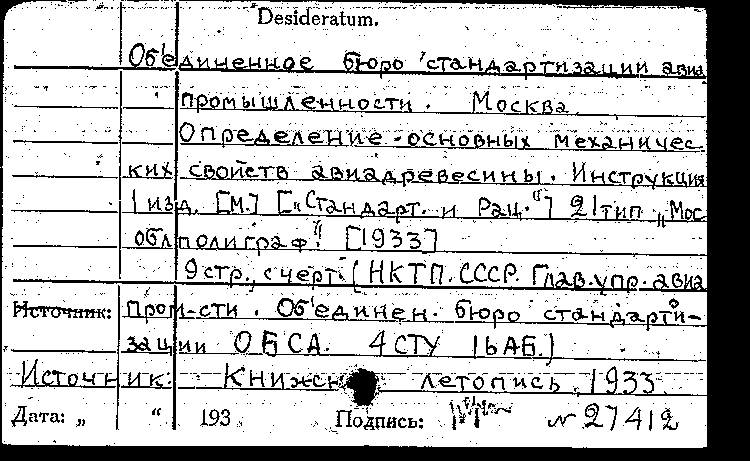 Desideratum.
Об'единенное бюро стандартизации авиа
промышленности. Москва
Определение основных механичес
ких свойств авиадревесины. Инструкция
1 изд. [М.] [„Стандарт. и Рац."] 21 тип „Мос
облполиграф" [1933]
9 стр., с черт. (НКТП. СССР. Глав. упр. авиа
Источник: Пром-сти. Об'единен. бюро стандарти-
зации ОБСА. 4СТУ 16АБ.)
Источник: Книжн летопись, 1933
Дата: „ " 193 Подпись: № 27412